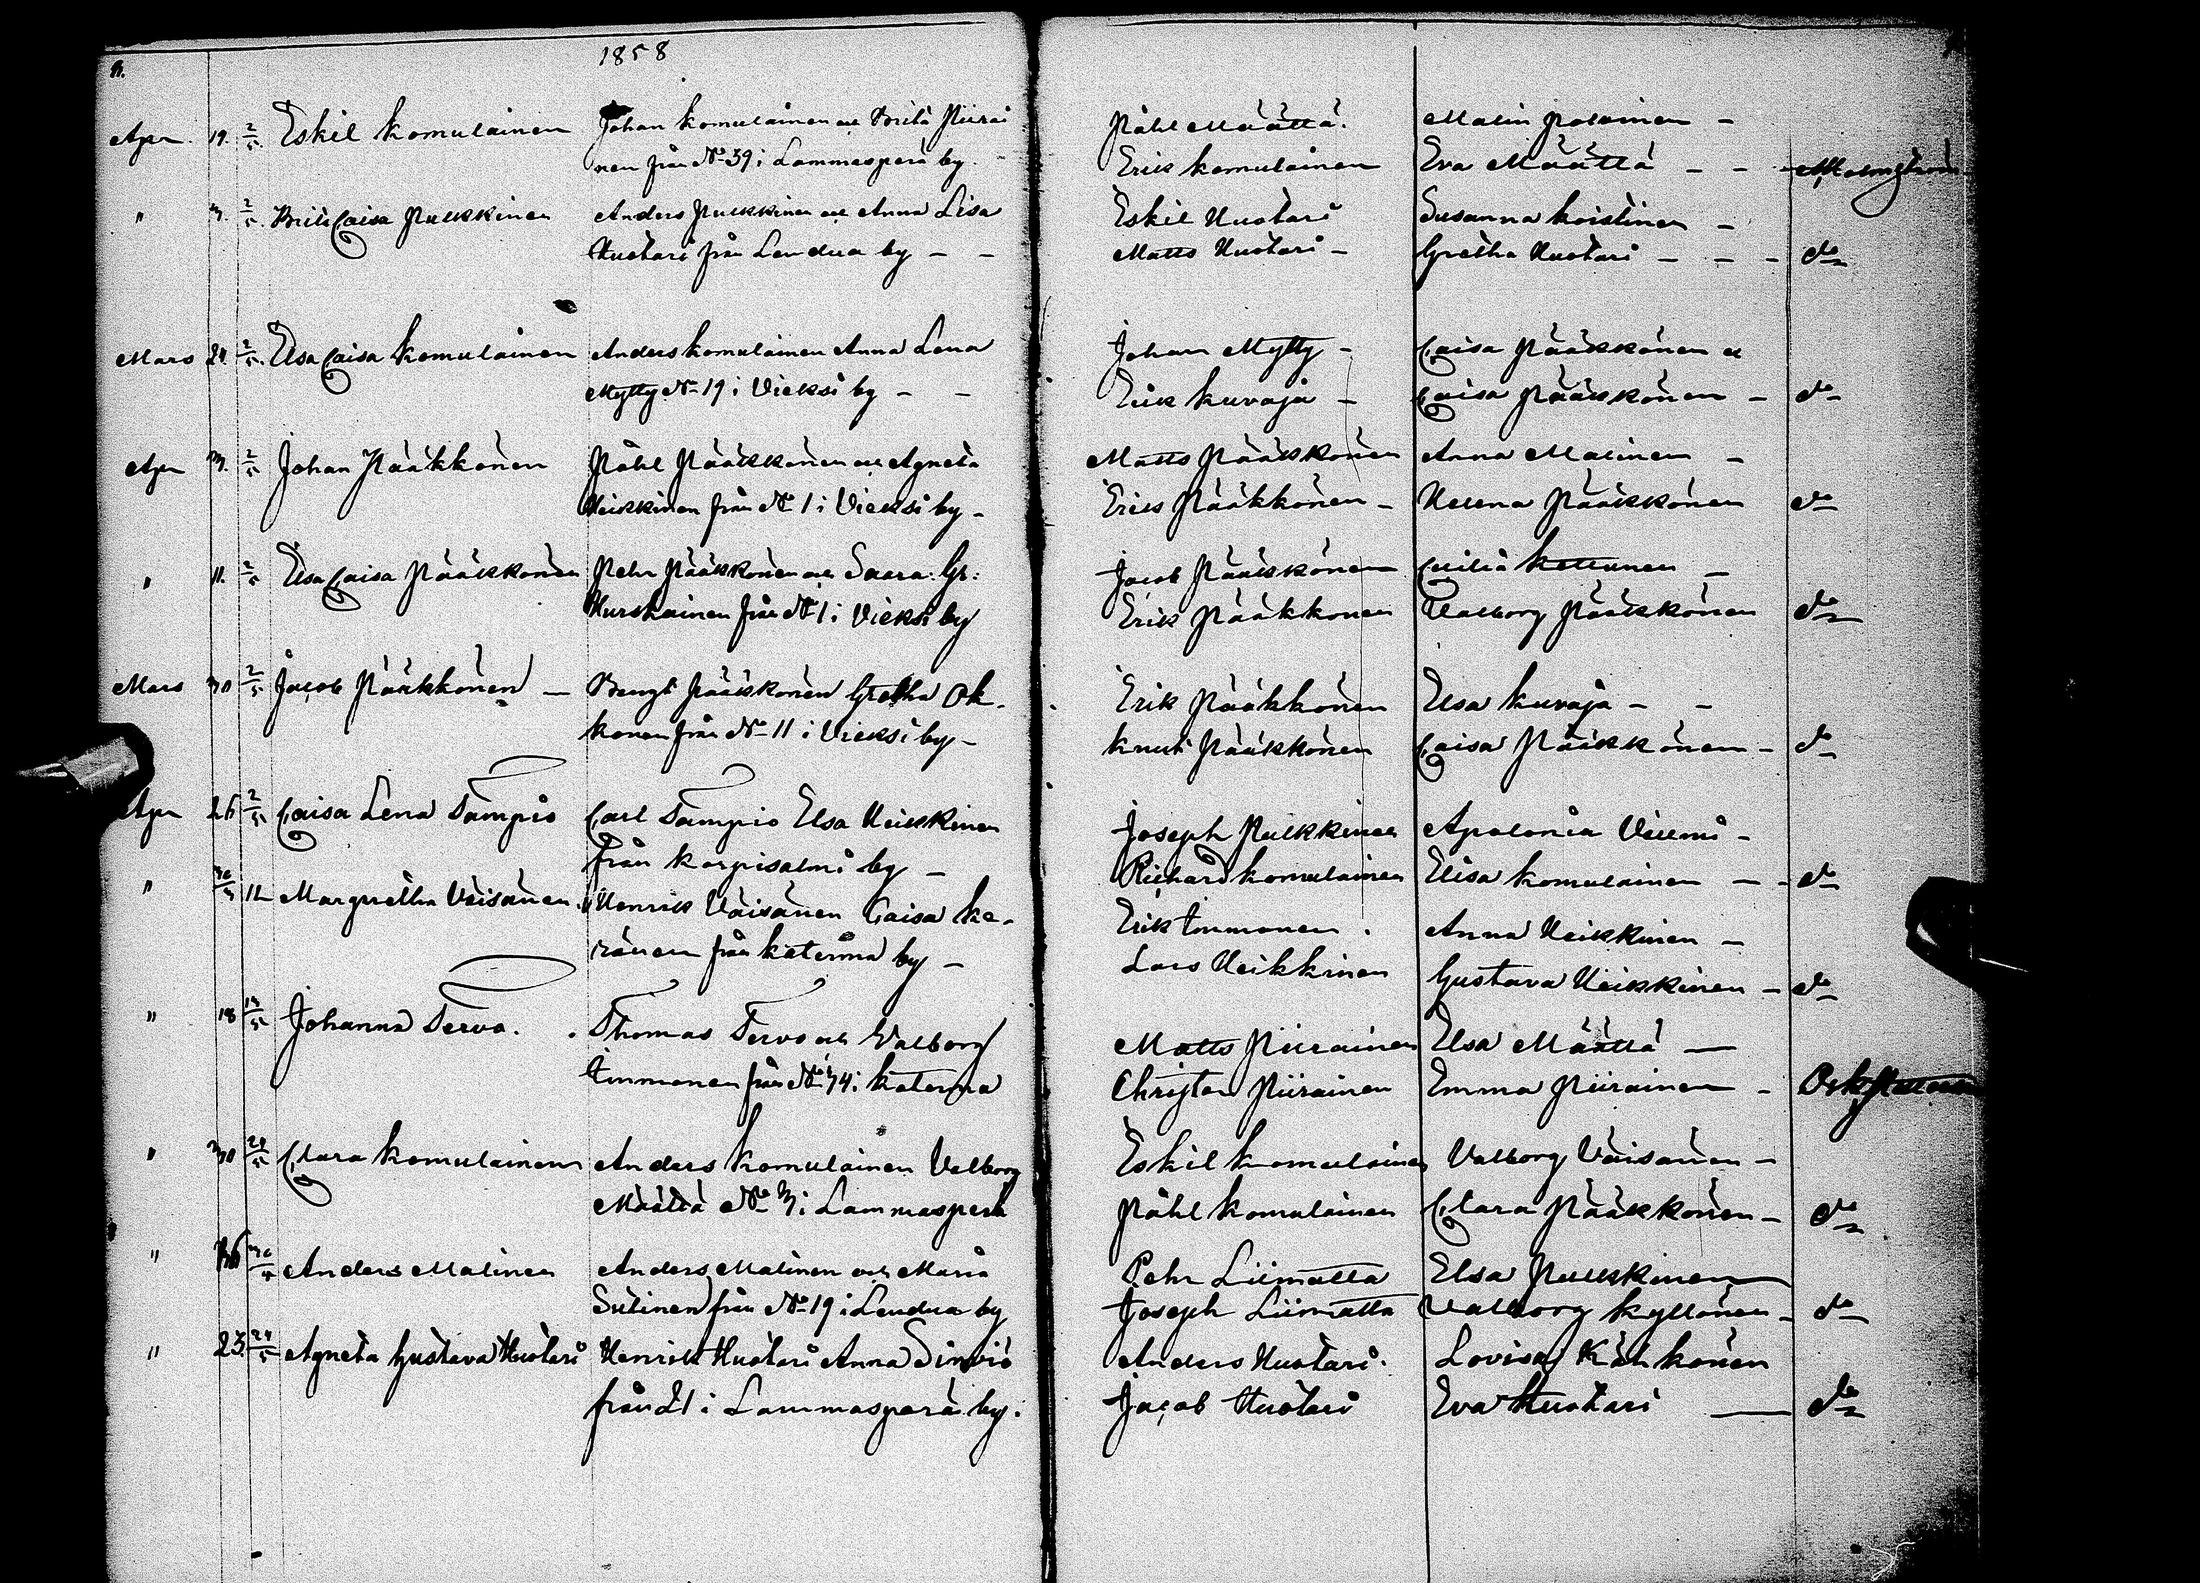 1858
Apr. 19. 2/5 Eskil Komulainen Johan Komulainen och Brita Piirai
nen från No 39 i Lammasperä by.
" 2/5. Brita Caisa Pulkkinen Anders Pulkkinen och Anna Lisa
Huotari från Lendua by - -
Mars 21. 2/5. Elsa Caisa Komulainen Anders Komulainen Anna Lena
Mytty No 19 i Vieksi by - -
Apr 2/5 Johan Pääkkönen Påhl Pääkkönen och Agneta
Heikkinen från No 1 i Vieksi by -
" 11. 2/5 Elsa Caisa Pääkkönen Pehr Pääkkönen och Saara Gr:
Hurskainen från No 1 i Vieksi by
Mars 30 2/5 Jacob Pääkkönen - Bengt Pääkkönen Gretha Ok-
konen från No 11 i Vieksi by -
Apr 26 2/5 Caisa Lena Tampio Carl Tampio Elsa Heikkinen
från Korpisalmi by -
" 12 Margretha Väisänen Henrik Väisänen Caisa Ke-
ränen från Katerma by -
" 18 Johanna Tervo. Thomas Tervo och Valborg
Timmonen från No 34 i Katerma
" 30 24/5 Clara Komulainen Anders Komulainen Valborg
Määttä No 3 i Lammasperä
" Anders Malinen Anders Malinen och Maria
Sutinen från No 19 i Lendua by
" 23. 24/5 Agneta Gustava Huotari Henrik Huotari Anna Sirviö
från 21 i Lammasperä by.
Påhl Määttä. Malin Polvinen -
Erik Komulainen Eva Määttä - - Malmgren
Eskil Huotari Susanna Koistinen -
Matts Huotari - Gretha Huotari - - - do
Johan Mytty - Caisa Pääkkönen
Erik Kuvaja - Caisa Pääkkönen - do
Matts Pääkkönen Anna Malinen -
Erik Pääkkönen - Helena Pääkkönen do
Jacob Pääkkönen Cecilia Kettunen -
Erik Pääkkönen Valborg Pääkkönen do
Erik Pääkkönen Elsa Kuvaja - -
Knut Pääkkönen Caisa Pääkkönen - do
Joseph Pulkkinen Apolonia Villmi -
Richard Komulainen Elisa Komulainen - - do
Erik Timmonen. Anna Heikkinen -
Lars Heikkinen Gustava Heikkinen - do
Matts Piirainen Elsa Määttä -
Christer Piirainen Emma Piirainen -
Eskil Komulainen Valborg Väisänen -
Påhl Komulainen Clara Pääkkönen - do
Pehr Liimatta Elsa Pulkkinen
Joseph Liimatta Valborg Kyllönen - do
Anders Huotari. Lovisa Kähkönen
Jacob Huotari Eva Huotari - do